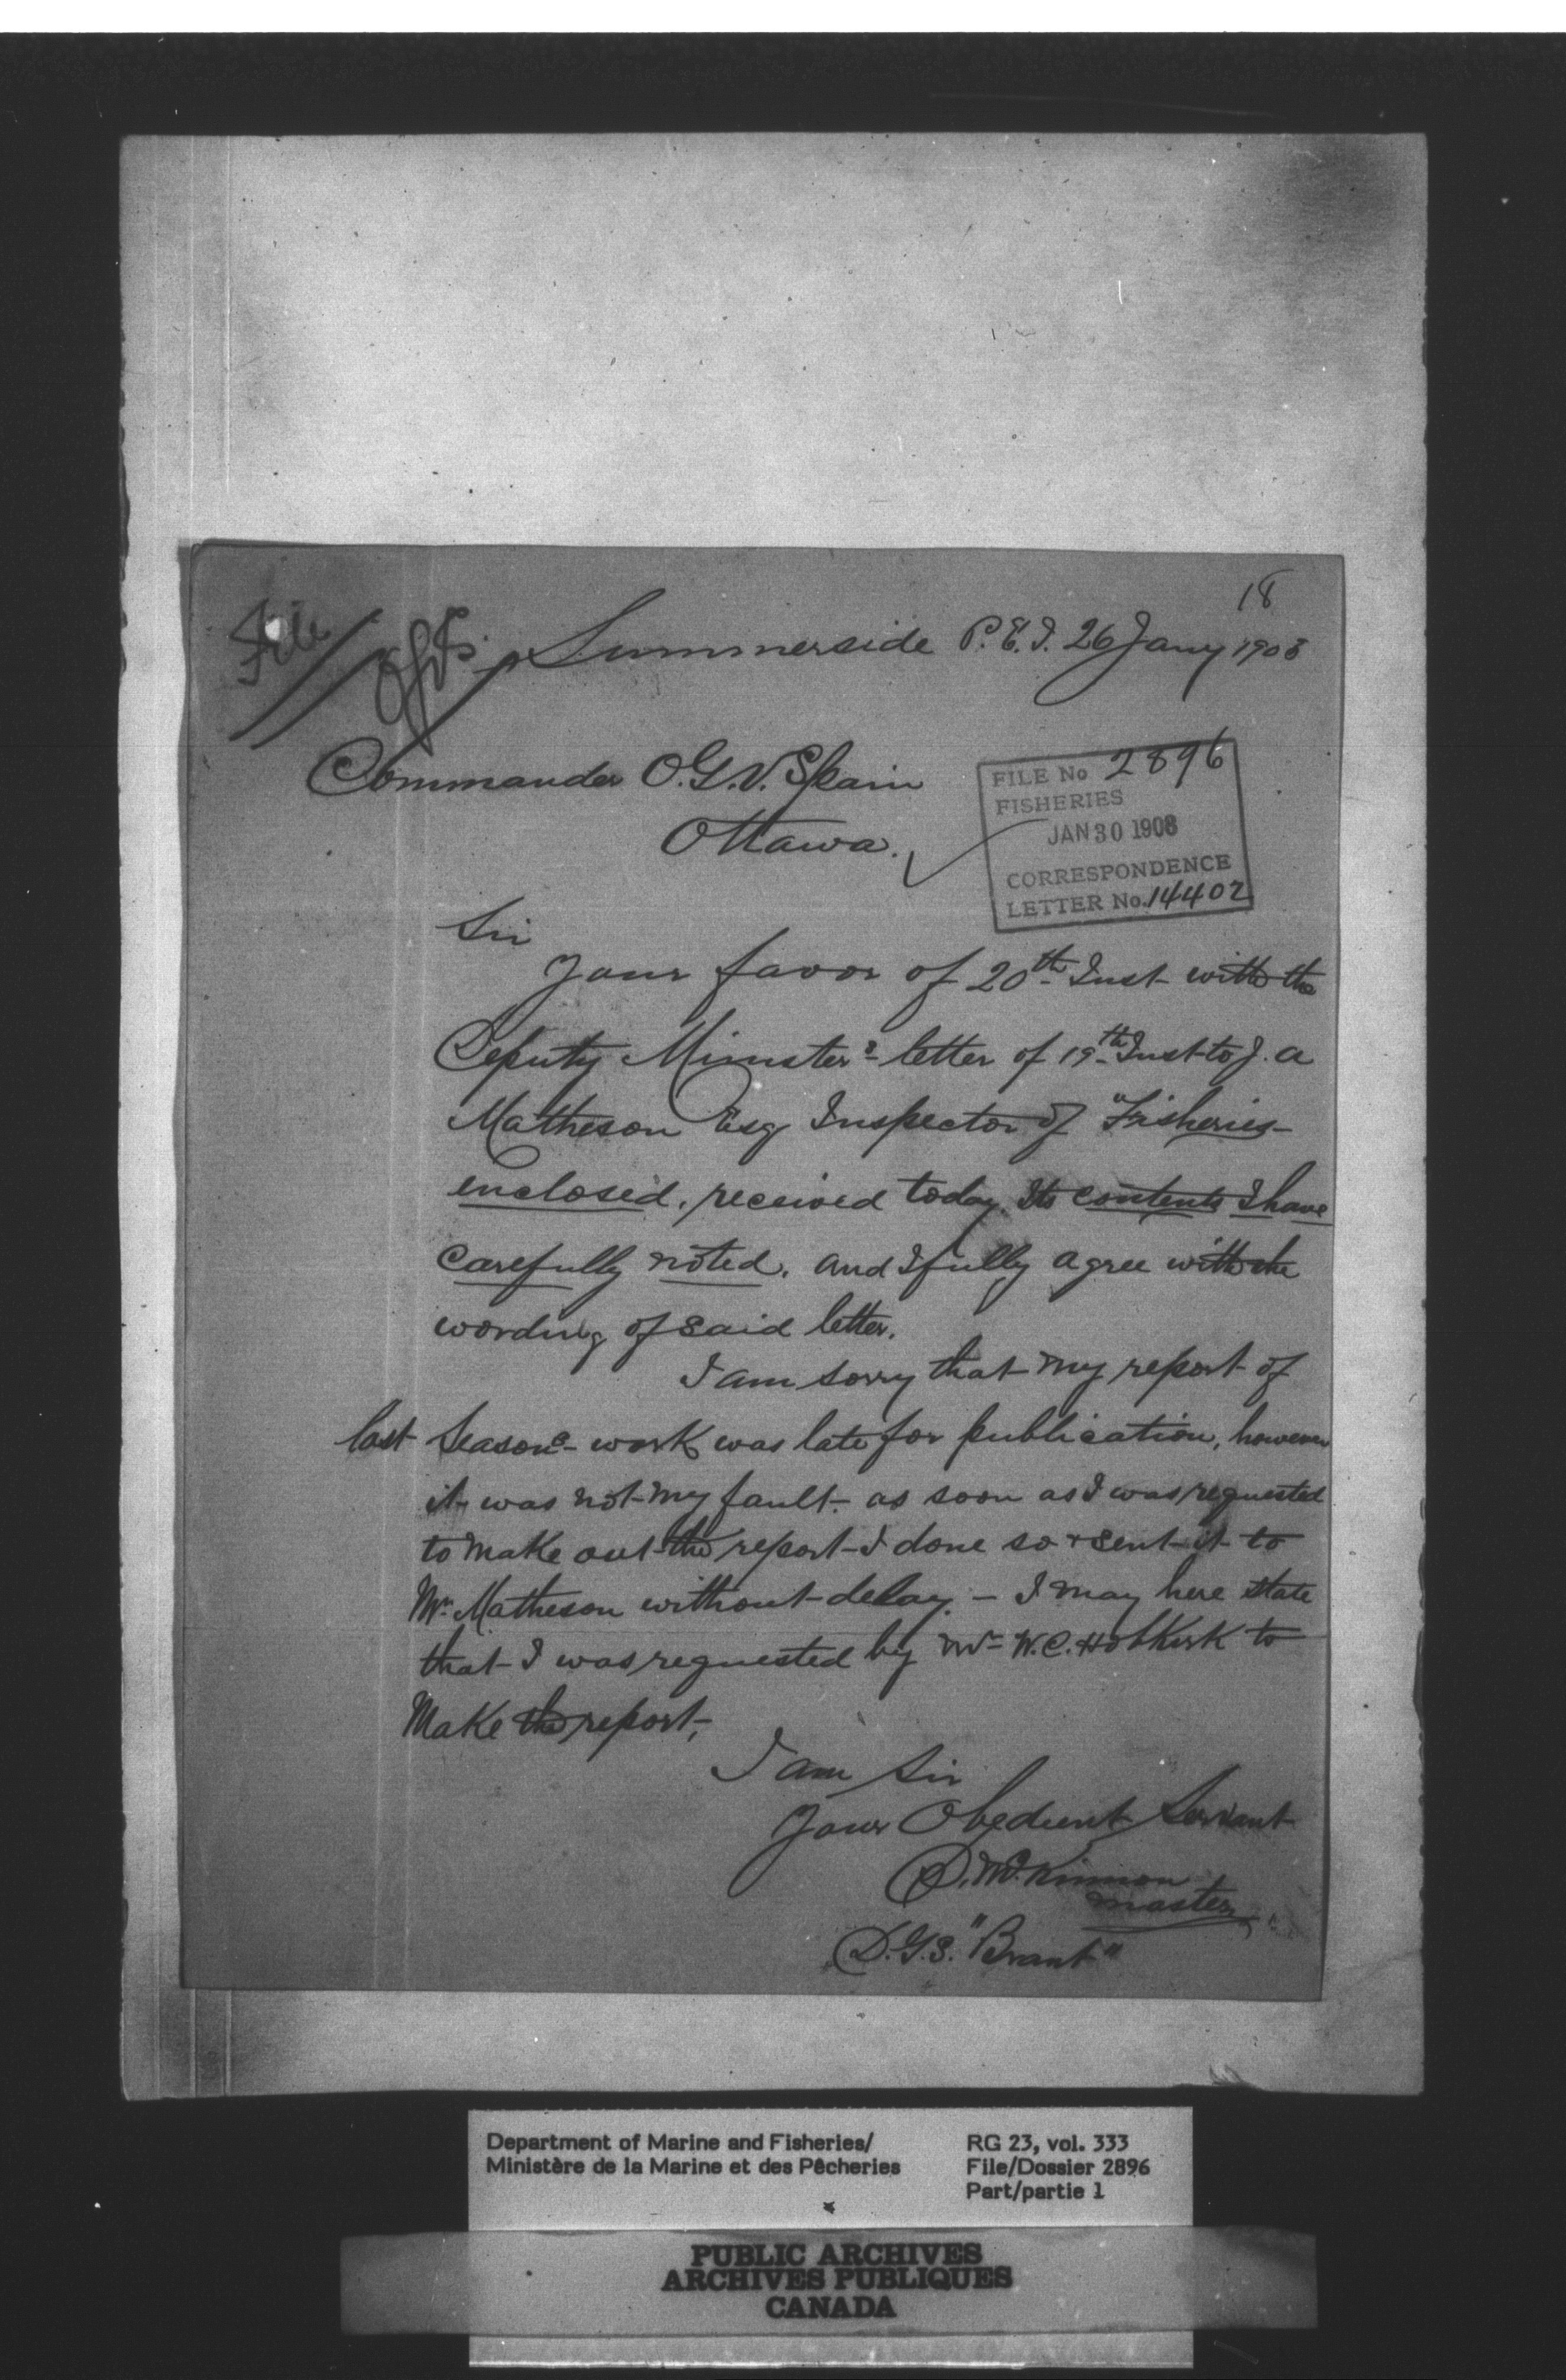 18
File
Summerside P.E.I. 26 Jany 1908
Commander O.G.V. Spain
Ottawa.
FILE No 2896
FISHERIES
JAN 30 1908
CORRESPONDENCE
LETTER No. 14402
Sir
Your favor of 20th Inst with the
Deputy Minister's letter of 19th Inst to J. A
Matheson Esq Inspector of Fisheries
enclosed. received today. Its contents I have
carefully noted. and I fully agree with the
wording of said letter.
I am sorry that my report of
last Season's work was late for publication, however
it was not my fault. as soon as I was requested
to make out the report I done so + sent it to
Mr. Matheson without delay. – I may here state
that I was requested by Mr W.C. Hobkirk to
Make the report,
I am Sir
Your Obedient Servant
D. McKinnon
Master
D.G.S. "Brant"
Department of Marine and Fisheries/
Ministère de la Marine et des Pêcheries
RG 23, vol. 333
File/Dossier 2896
Part/partie 1
PUBLIC ARCHIVES
ARCHIVES PUBLIQUES
CANADA